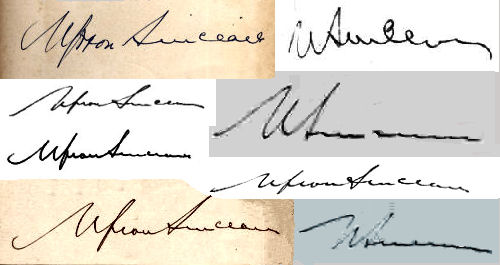 Upton Sinclair
USinclair
Upton Sinclair
USinclair
Upton Sinclair
Upton Sinclair
Upton Sinclair
USinclair